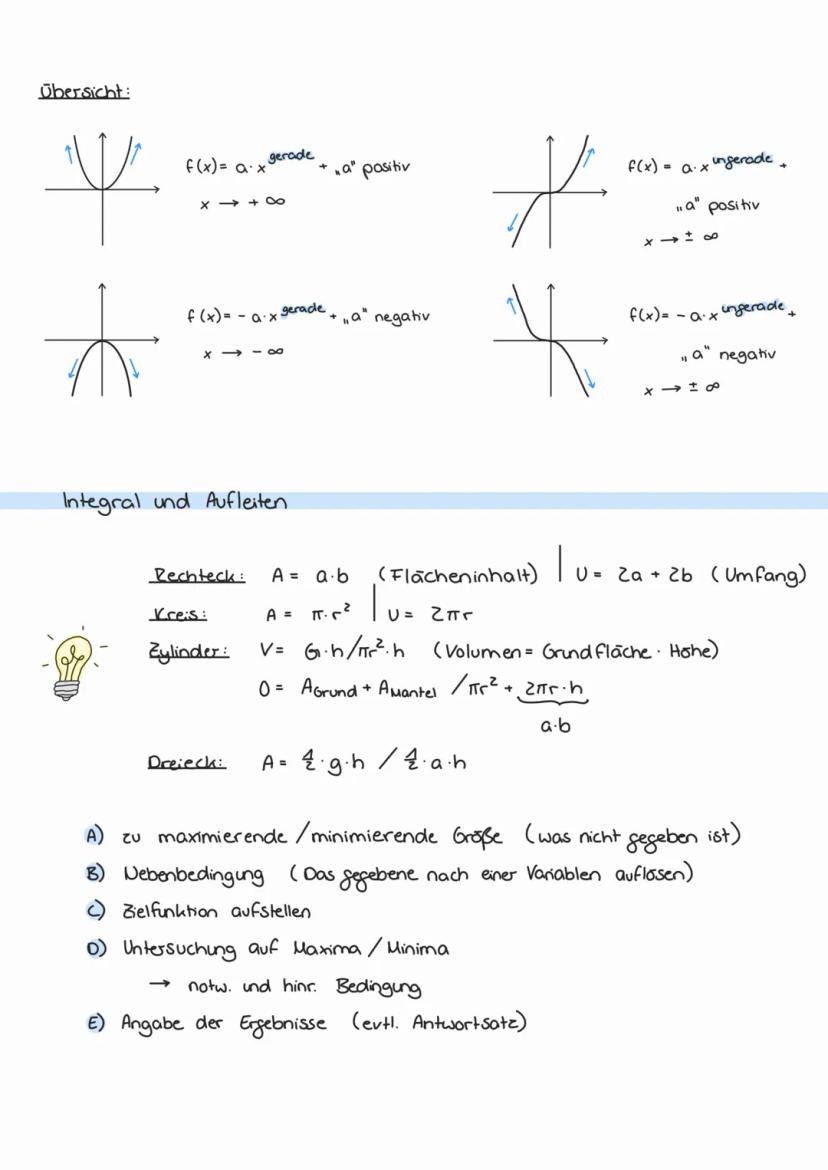 Übersicht:
f(x) = a·x^gerade + „a" positiv
x → + ∞
f(x) = a·x^ungerade +
„a" positiv
x → ± ∞
f(x) = - a·x^gerade + „a" negativ
x → - ∞
f(x) = - a·x^ungerade +
„a" negativ
x → ± ∞
Integral und Aufleiten
Rechteck: A = a·b (Flächeninhalt) | U = 2a + 2b (Umfang)
Kreis: A = π·r² | U = 2πr
Zylinder: V = G·h/πr²·h (Volumen = Grundfläche · Höhe)
O = AGrund + AMantel / πr² + 2πr·h
a·b
Dreieck: A = 1/2·g·h / 1/2·a·h
A) zu maximierende/minimierende Größe (was nicht gegeben ist)
B) Nebenbedingung (Das gegebene nach einer Variablen auflösen)
C) Zielfunktion aufstellen
D) Untersuchung auf Maxima/Minima
→ notw. und hinr. Bedingung
E) Angabe der Ergebnisse (evtl. Antwortsatz)